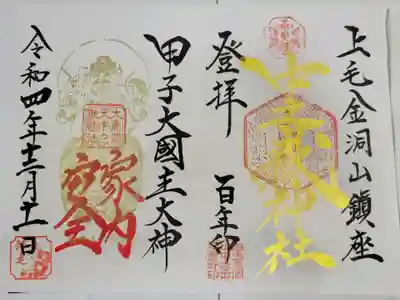 上毛金洞山鎮座
中之嶽神社
登拝
百年印
甲子大國主大神
家内
安全
令和四年十二月十一日